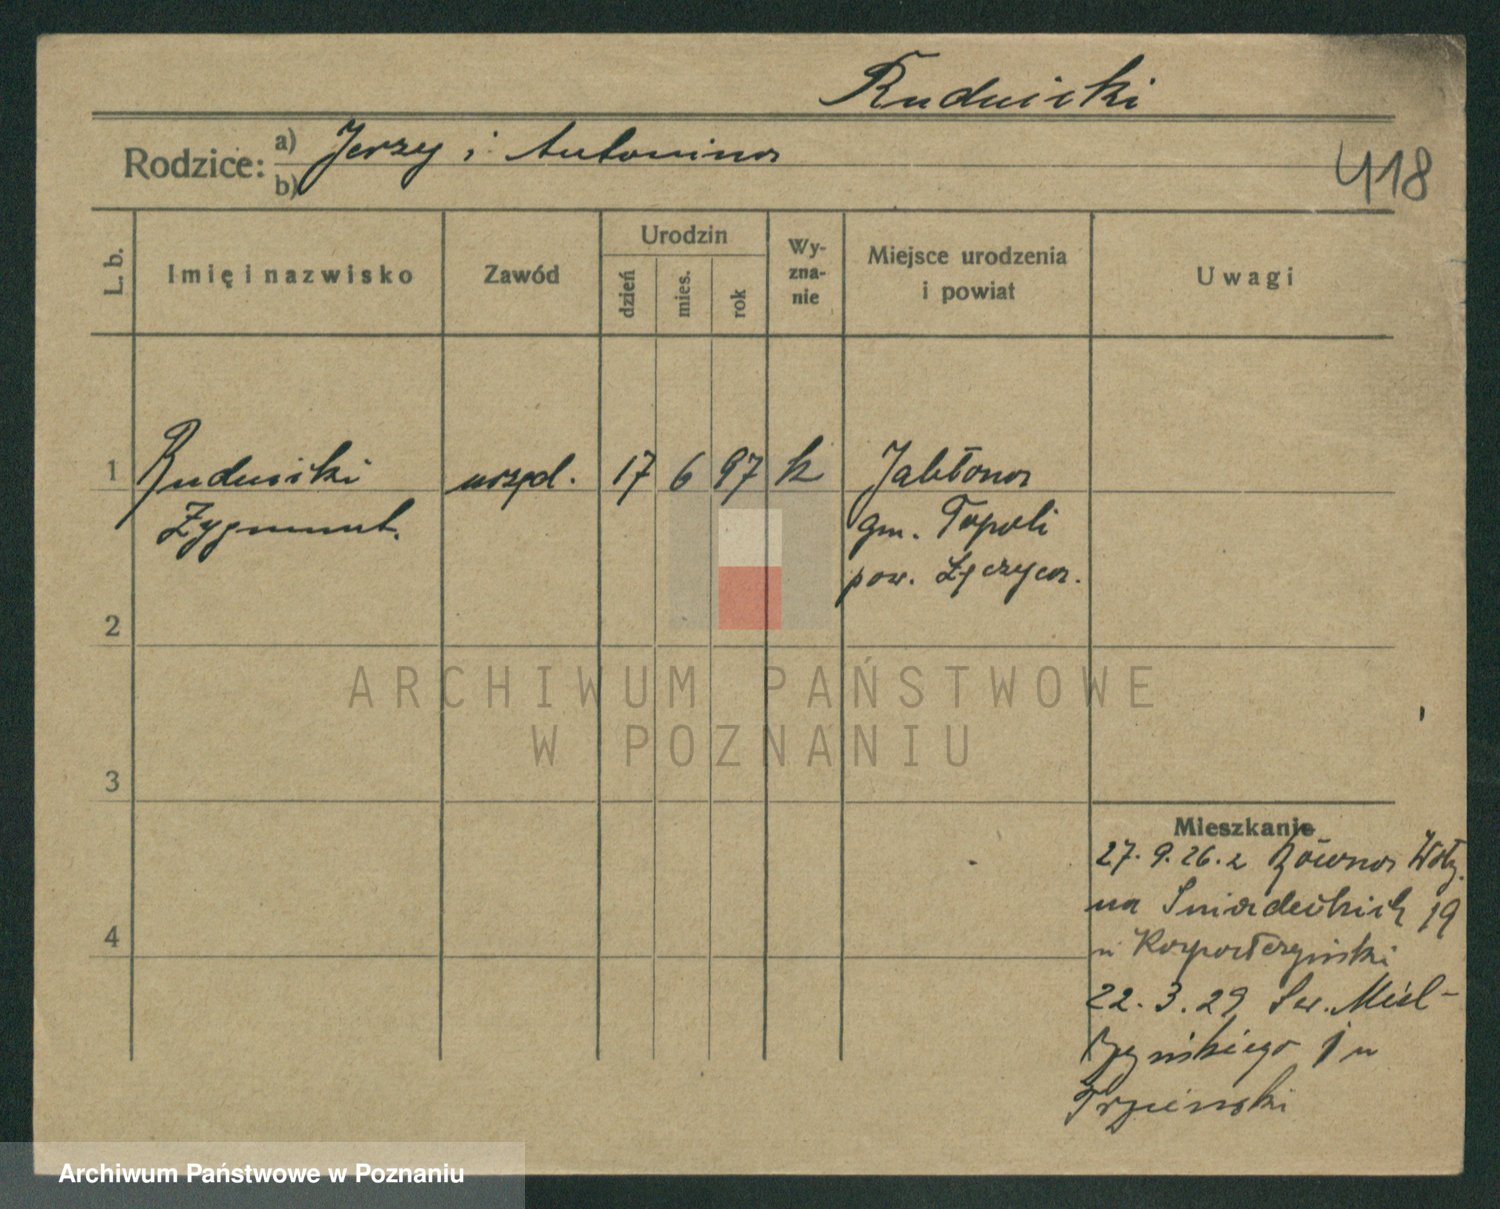 Rudnicki
Rodzice: a) Jerzy i Antonina
b)
418
L. b.
Imię i nazwisko
Zawód
Urodzin
dzień
mies.
rok
Wy-
zna-
nie
Miejsce urodzenia
i powiat
Uwagi
1 Rudnicki urzęd. 17 6 97 k Jabłona
Zygmunt. gm. Topoli
pow. Łęczyca.
2
ARCHIWUM PAŃSTWOWE
W POZNANIU
3
Mieszkanie
27.9.26. z Równa Woły.
na Śniadeckich 19
4
u
22.3.29 Sew. Miel-
żyńskiego 1 u
Archiwum Państwowe w Poznaniu